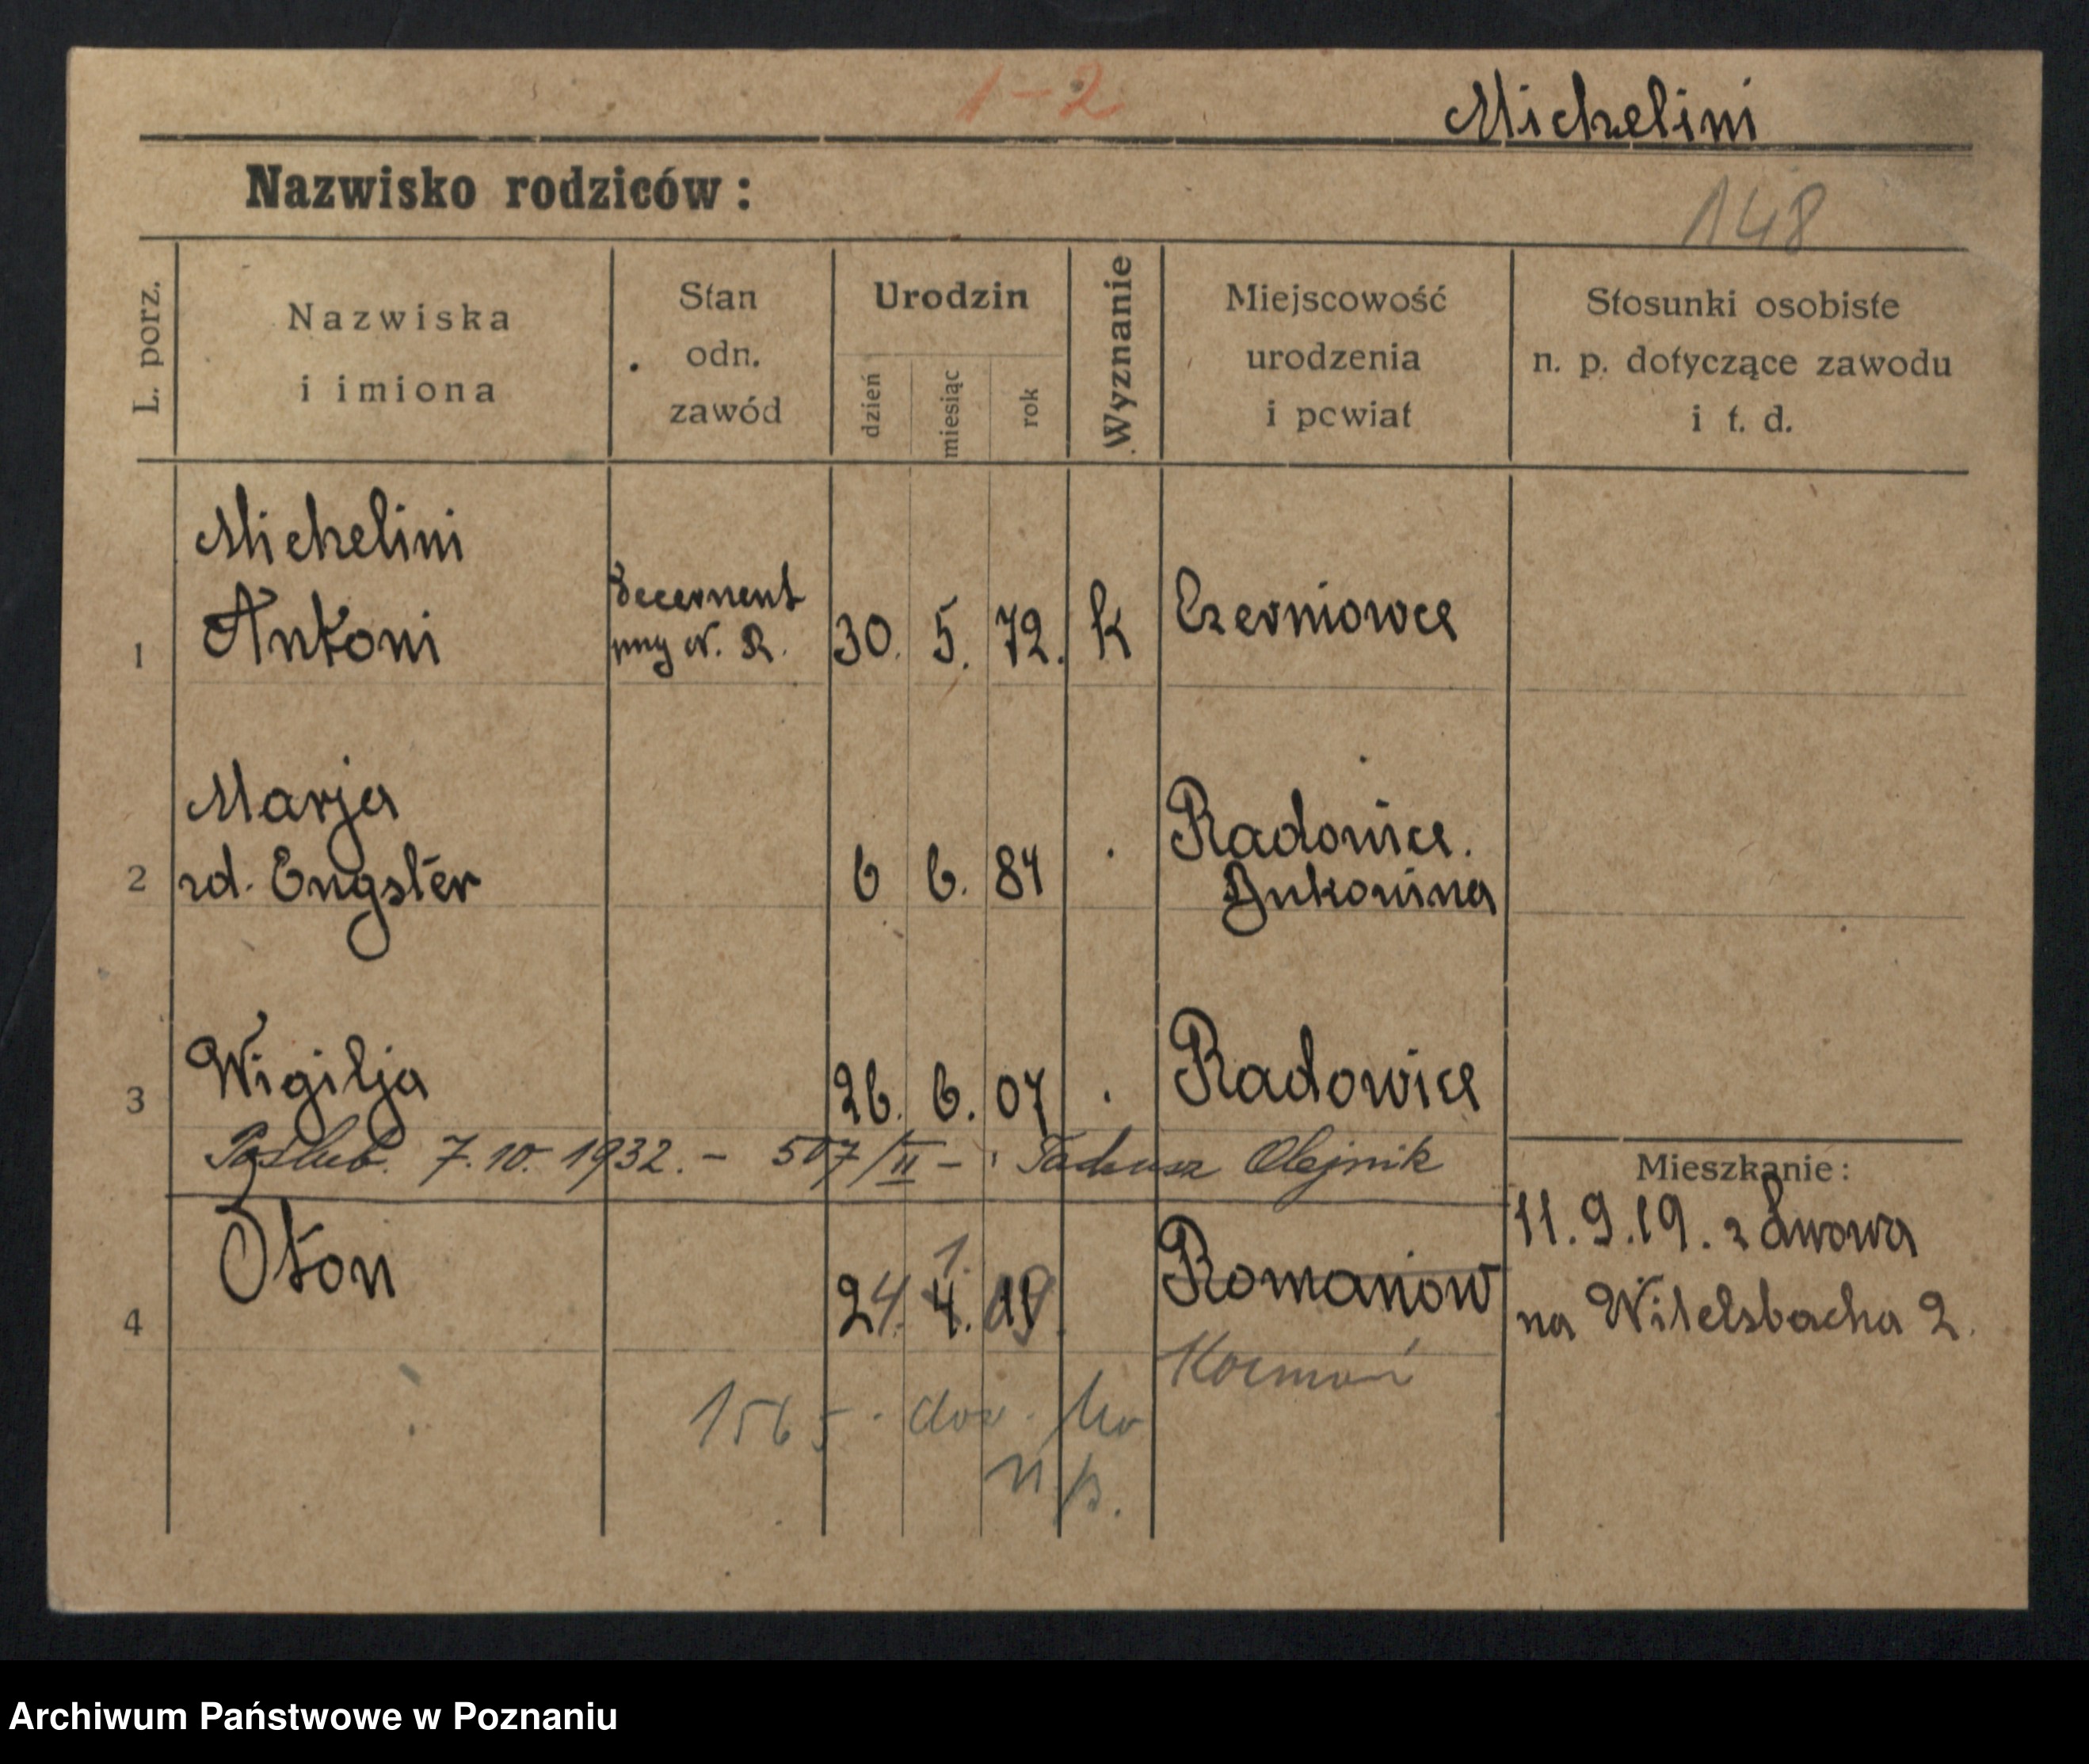 1-2
Michelini
Nazwisko rodziców:
148
L. porz.
Nazwiska
i imiona
Stan
odn.
zawód
Urodzin
dzień
miesiąc
rok
Wyznanie
Miejscowość
urodzenia
i powiat
Stosunki osobiste
n. p. dotyczące zawodu
i t. d.
Michelini
1 Antoni
decernent
30. 5. 72. k Czerniowce
Marja
2 rd. Engster
6 6. 84
Radowice.
Bukowina
3 Wigilja 26. 6. 07 Radowice
Poślub. 7.10.1932. - 507/II - Tadeusz Olejnik
Mieszkanie:
11.9.19. z Lwowa
na Witelsbacha 2.
4 Oton 24.
1.
4.
Romanow
1565. dow.